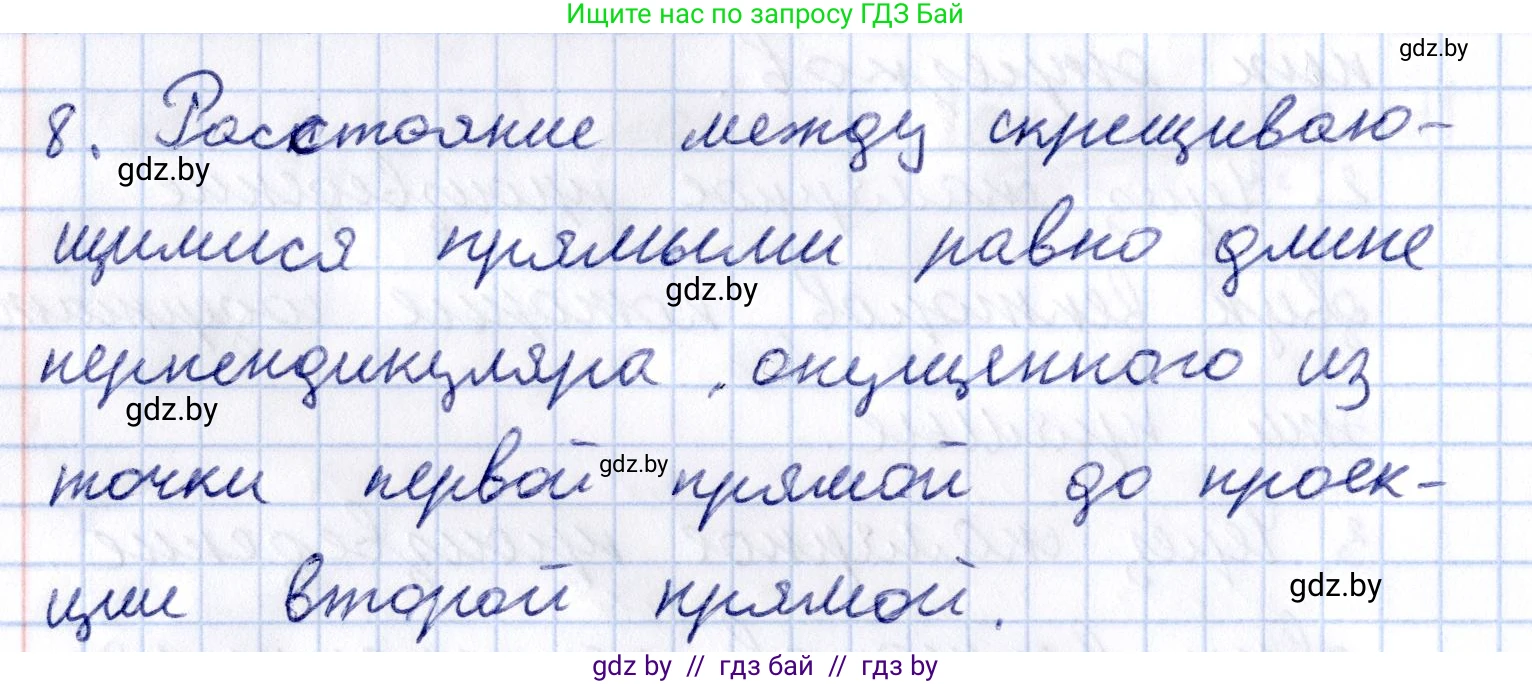 Ищите нас по запросу ГДЗ Бай
gdz.by
8. Расстояние между скрещиваю-
gdz.by
щимися прямыми равно длине
gdz.by
перпендикуляра, опущенного из
gdz.by
точки первой прямой до проек-
gdz.by
ции второй прямой.
gdz.by
gdz by // гдз бай // гдз by